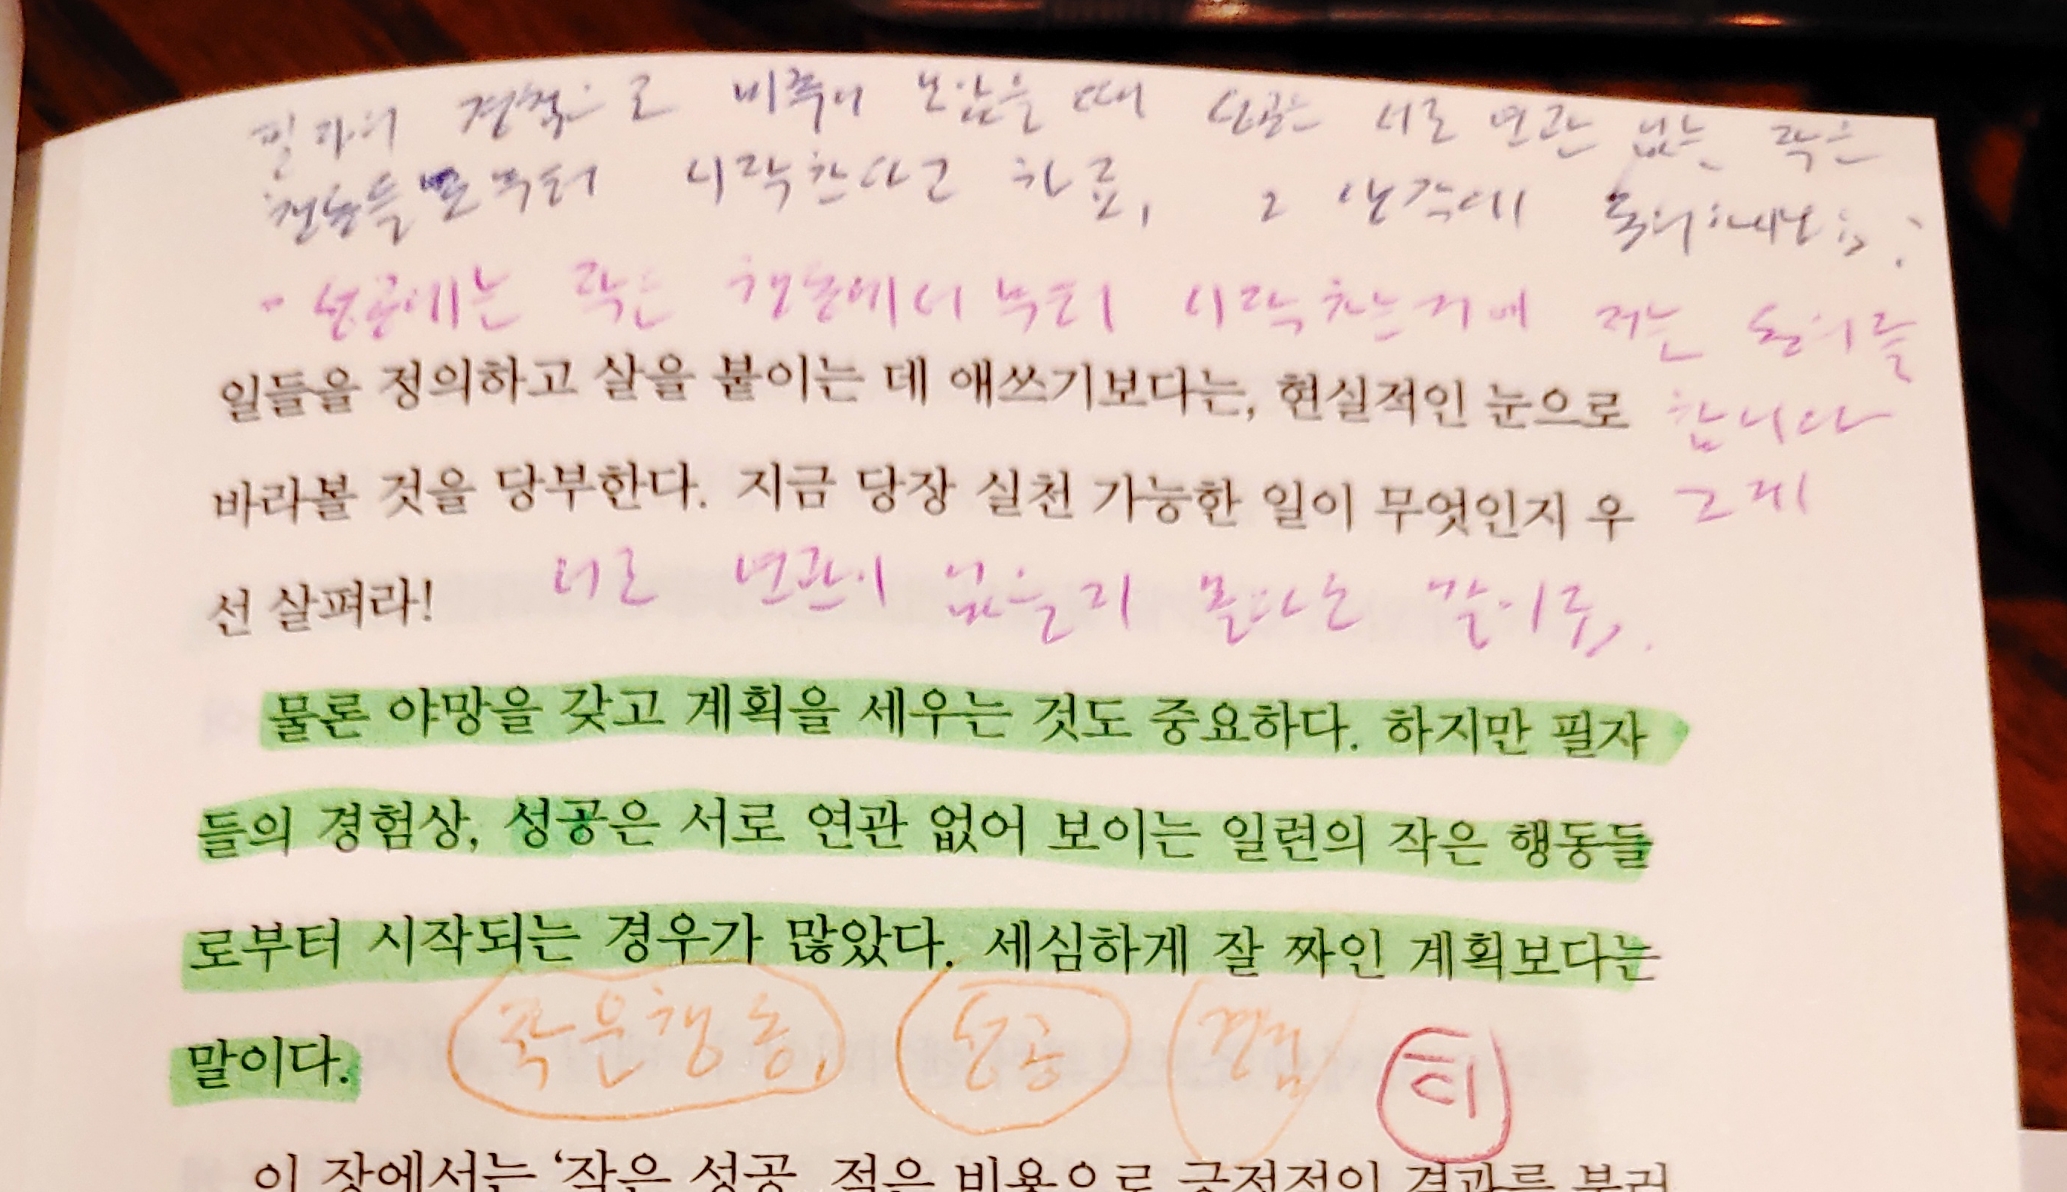 필자의 경험으로 비추어 보았을 때 성공은 서로 연관 없는 작은
행동들로부터 시작한다고 하죠, 그 생각에 동의하시나요?
- 성공에는 작은 행동에서부터 시작하는거에 저는 동의를
일들을 정의하고 살을 붙이는 데 애쓰기보다는, 현실적인 눈으로
합니다
바라볼 것을 당부한다. 지금 당장 실천 가능한 일이 무엇인지 우
그게
선 살펴라!
서로 연관이 없을지 몰라도 말이죠.
물론 야망을 갖고 계획을 세우는 것도 중요하다. 하지만 필자
들의 경험상, 성공은 서로 연관 없어 보이는 일련의 작은 행동들
로부터 시작되는 경우가 많았다. 세심하게 잘 짜인 계획보다는
말이다.
작은행동, 성공 경험
이 장에서는 ‘작은 성공, 적은 비용으로 긍정적인 결과를 불러